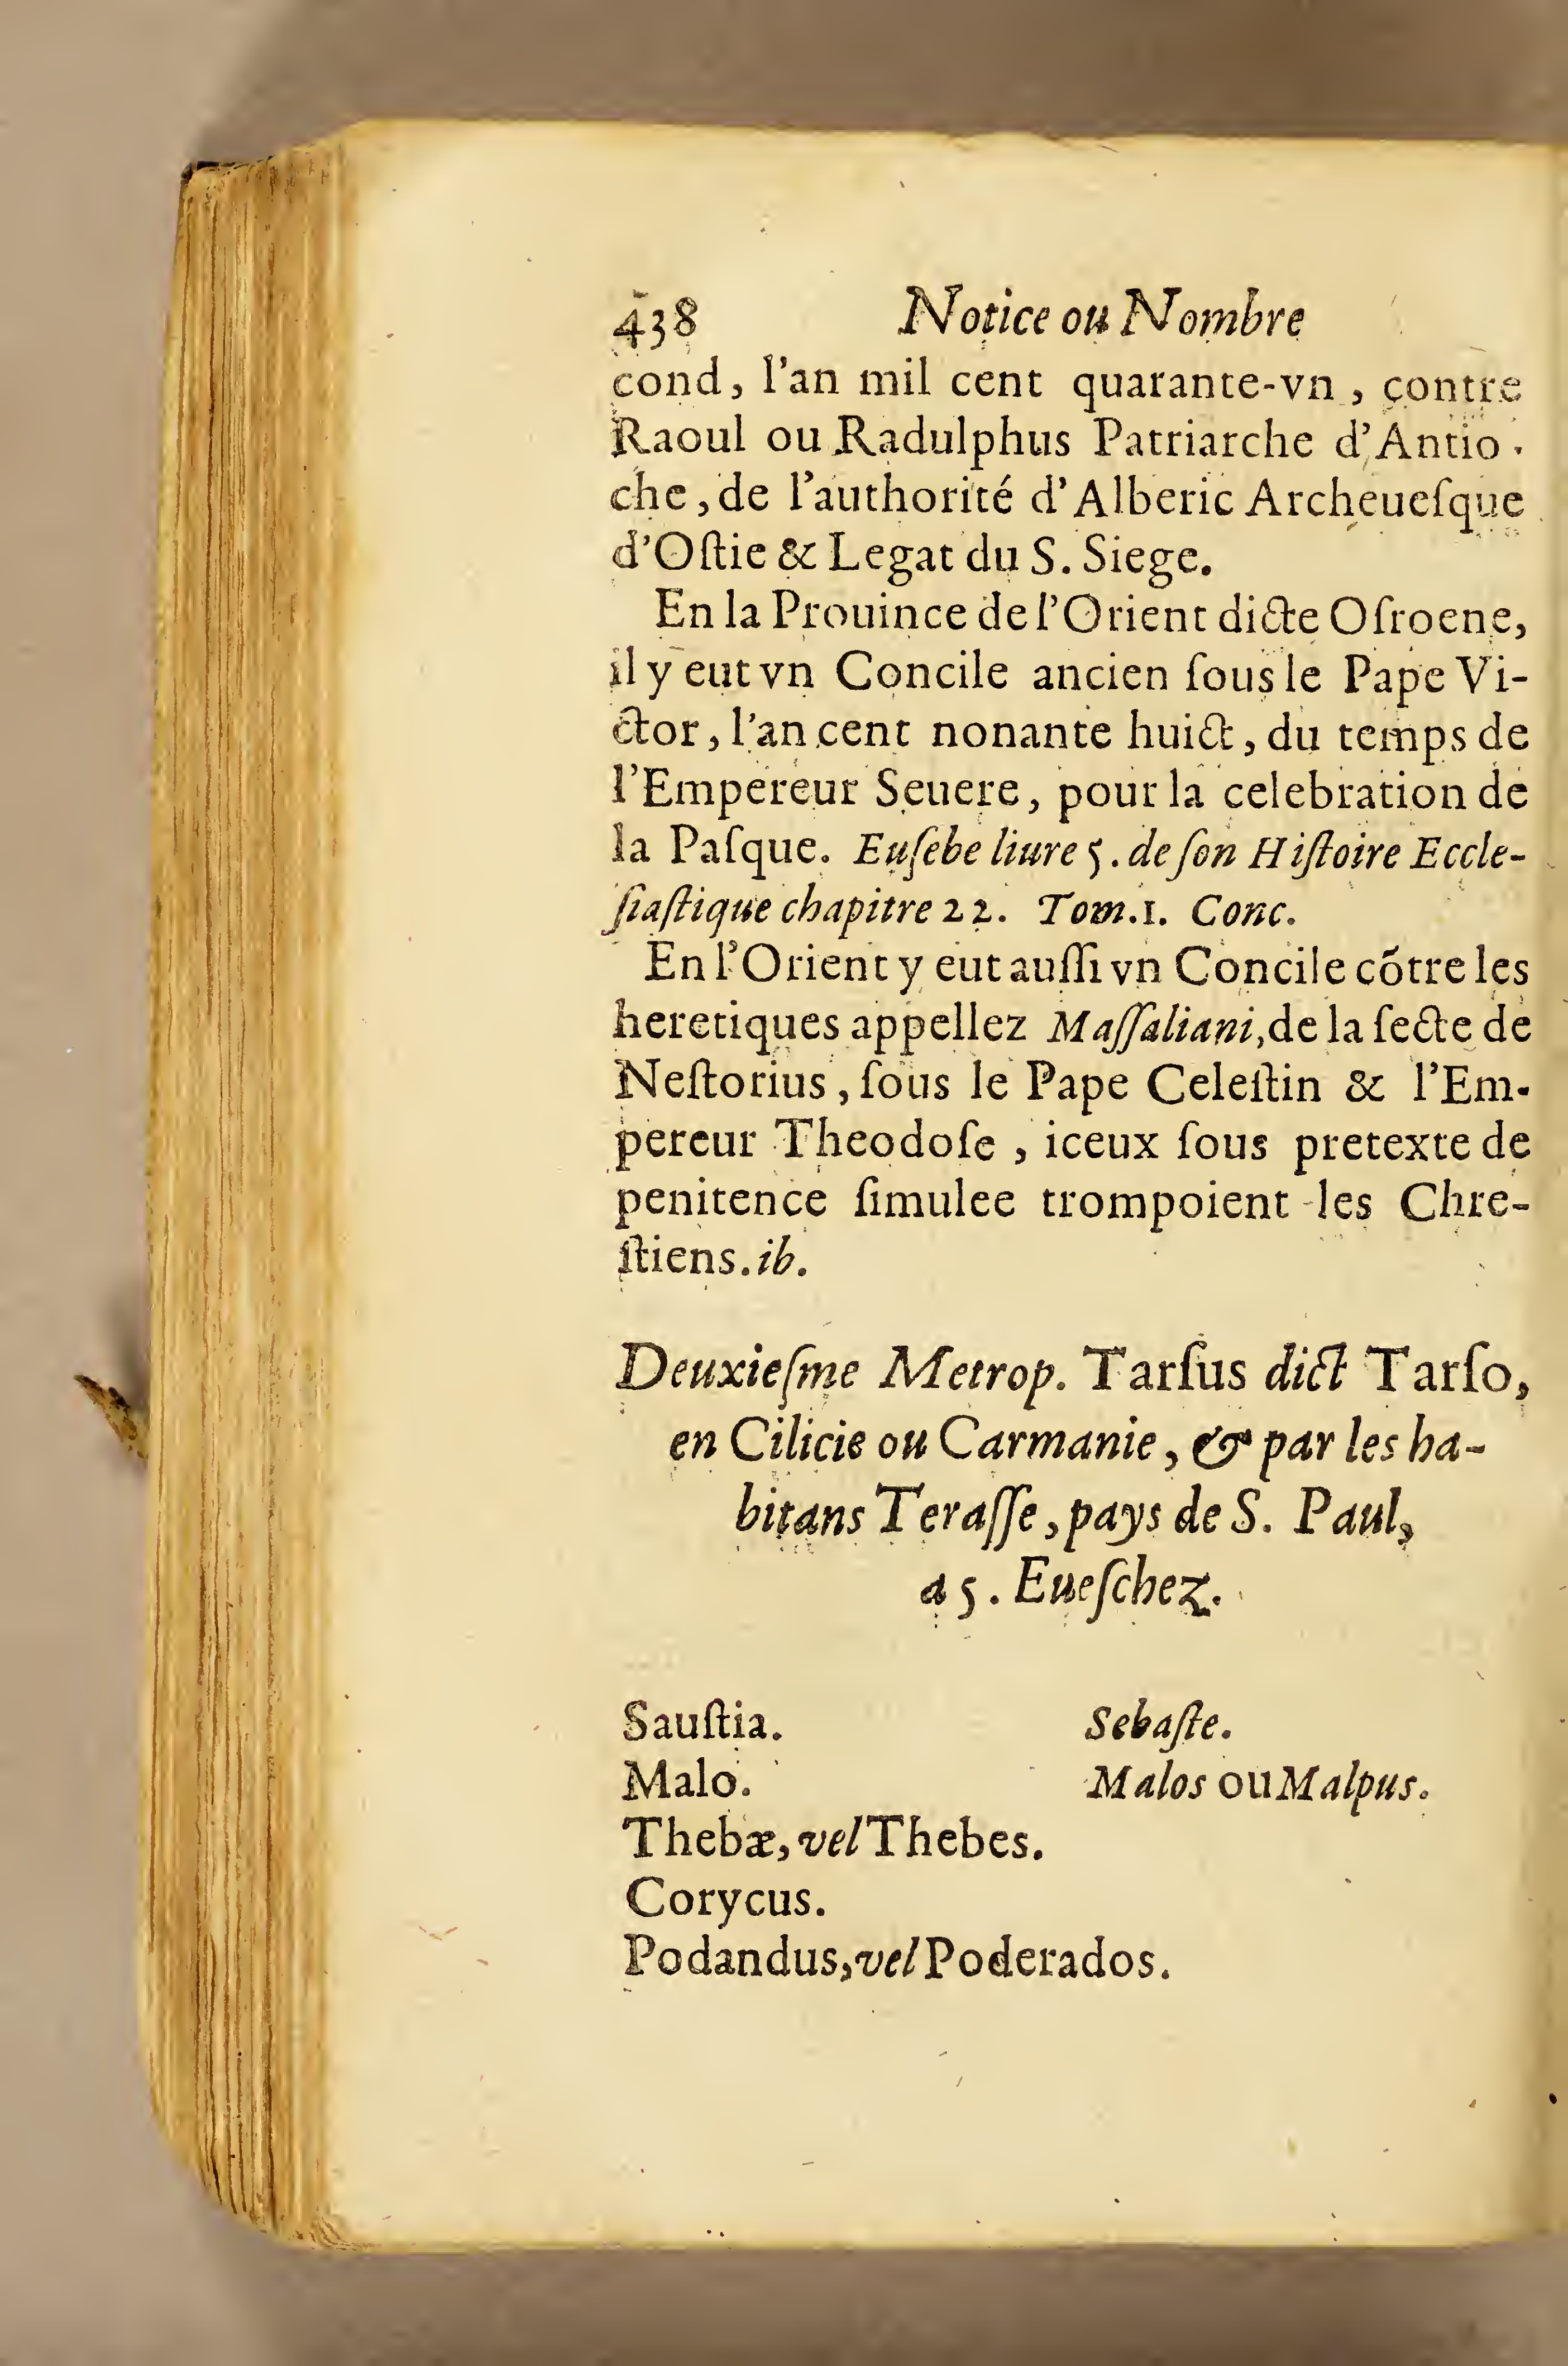 438 Notice ou Nombre
cond, l'an mil cent quarante-vn, contre
Raoul ou Radulphus Patriarche d'Antio-
che, de l'authorité d'Alberic Archeueſque
d'Oſtie & Legat du S. Siege.
En la Prouince de l'Orient dicte Oſroene,
il y eut vn Concile ancien ſous le Pape Vi-
ctor, l'an cent nonante huict, du temps de
l'Empereur Seuere, pour la celebration de
la Paſque. Euſebe liure 5. de ſon Hiſtoire Eccle-
ſiaſtique chapitre 22. Tom.1. Conc.
En l'Orient y eut auſſi vn Concile cõtre les
heretiques appellez Maſſaliani, de la ſecte de
Neſtorius, ſous le Pape Celeſtin & l'Em-
pereur Theodoſe, iceux ſous pretexte de
penitence ſimulee trompoient les Chre-
ſtiens. ib.
Deuxieſme Metrop. Tarſus dict Tarſo,
en Cilicie ou Carmanie, & par les ha-
bitans Teraſſe, pays de S. Paul,
a 5. Eueſchez.
Sauſtia. Sebaſte.
Malo. Malos ou Malpus.
Thebæ, vel Thebes.
Corycus.
Podandus, vel Poderados.